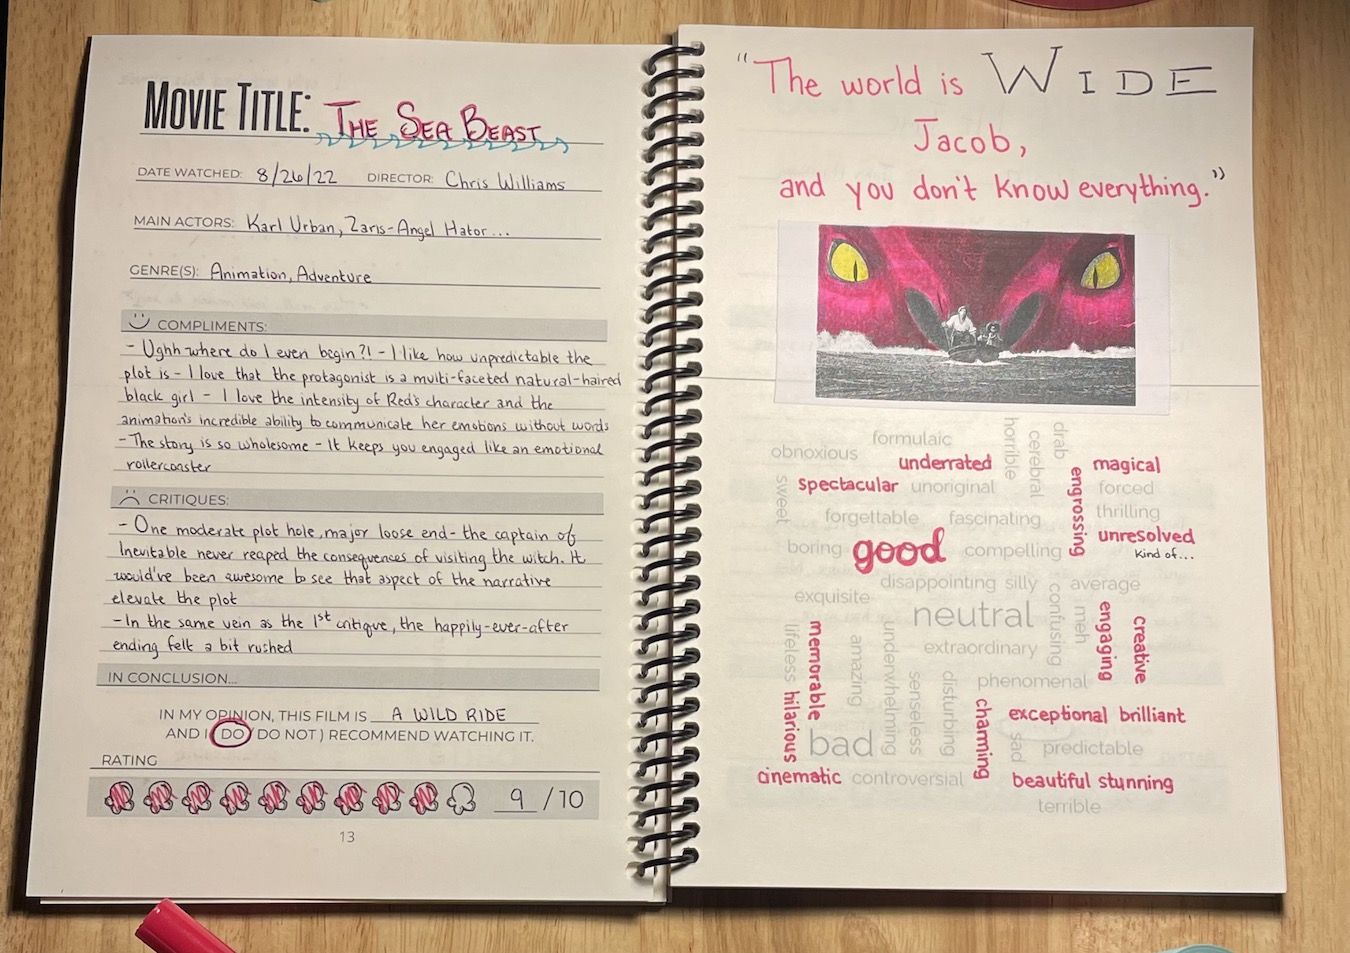 MOVIE TITLE: THE SEA BEAST
DATE WATCHED: 8/26/22 DIRECTOR: Chris Williams
MAIN ACTORS: Karl Urban, Zaris-Angel Hator...
GENRE(S): Animation, Adventure
COMPLIMENTS:
- Ughh where do I even begin?! - I like how unpredictable the
plot is - I love that the protagonist is a multi-faceted natural-haired
black girl - I love the intensity of Red's character and the
animation's incredible ability to communicate her emotions without words
- The story is so wholesome - It keeps you engaged like an emotional
rollercoaster
CRITIQUES:
- One moderate plot hole, major loose end - the captain of
Inevitable never reaped the consequences of visiting the witch. It
would've been awesome to see that aspect of the narrative
elevate the plot
- In the same vein as the 1st critique, the happily-ever-after
ending felt a bit rushed
IN CONCLUSION...
IN MY OPINION, THIS FILM IS A WILD RIDE
AND I (DO/ DO NOT) RECOMMEND WATCHING IT.
RATING
9 /10
13
"The world is WIDE
Jacob,
and you don't know everything."
formulaic
obnoxious
underrated
horrible
cerebral
drab
magical
sweet
spectacular
unoriginal
engrossing
forced
thrilling
forgettable
fascinating
unresolved
kind of...
boring
good
compelling
disappointing
silly
average
exquisite
neutral
confusing
meh
engaging
creative
lifeless
memorable
amazing
underwhelming
extraordinary
senseless
disturbing
phenomenal
hilarious
charming
exceptional
brilliant
bad
sad
predictable
cinematic
controversial
beautiful
stunning
terrible